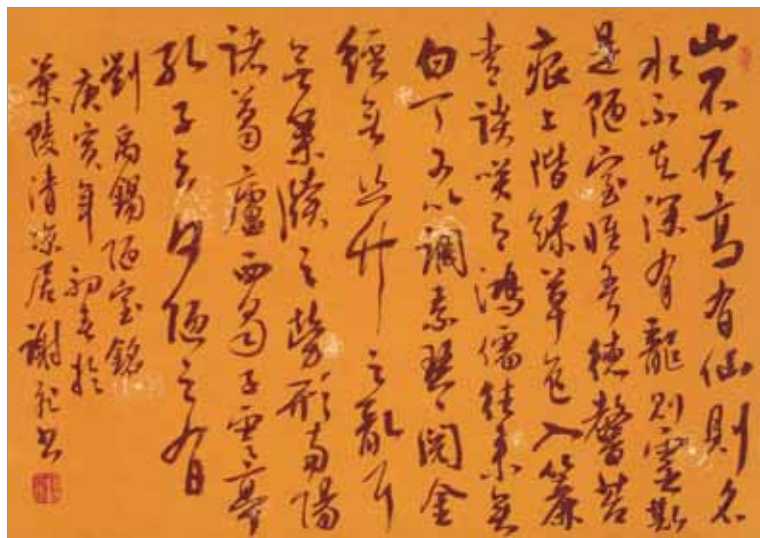 山不在高有仙則名
水不在深有龍則靈斯
是陋室惟吾德馨苔
痕上階綠草色入簾
青談咲有鴻儒往來無
白丁可以調素琴閱金
經無絲竹之亂耳
無案牘之勞形南陽
諸葛廬西蜀子雲亭
孔子云何陋之有
劉禹錫陋室銘
庚寅年初春於
陵清涼居謝書